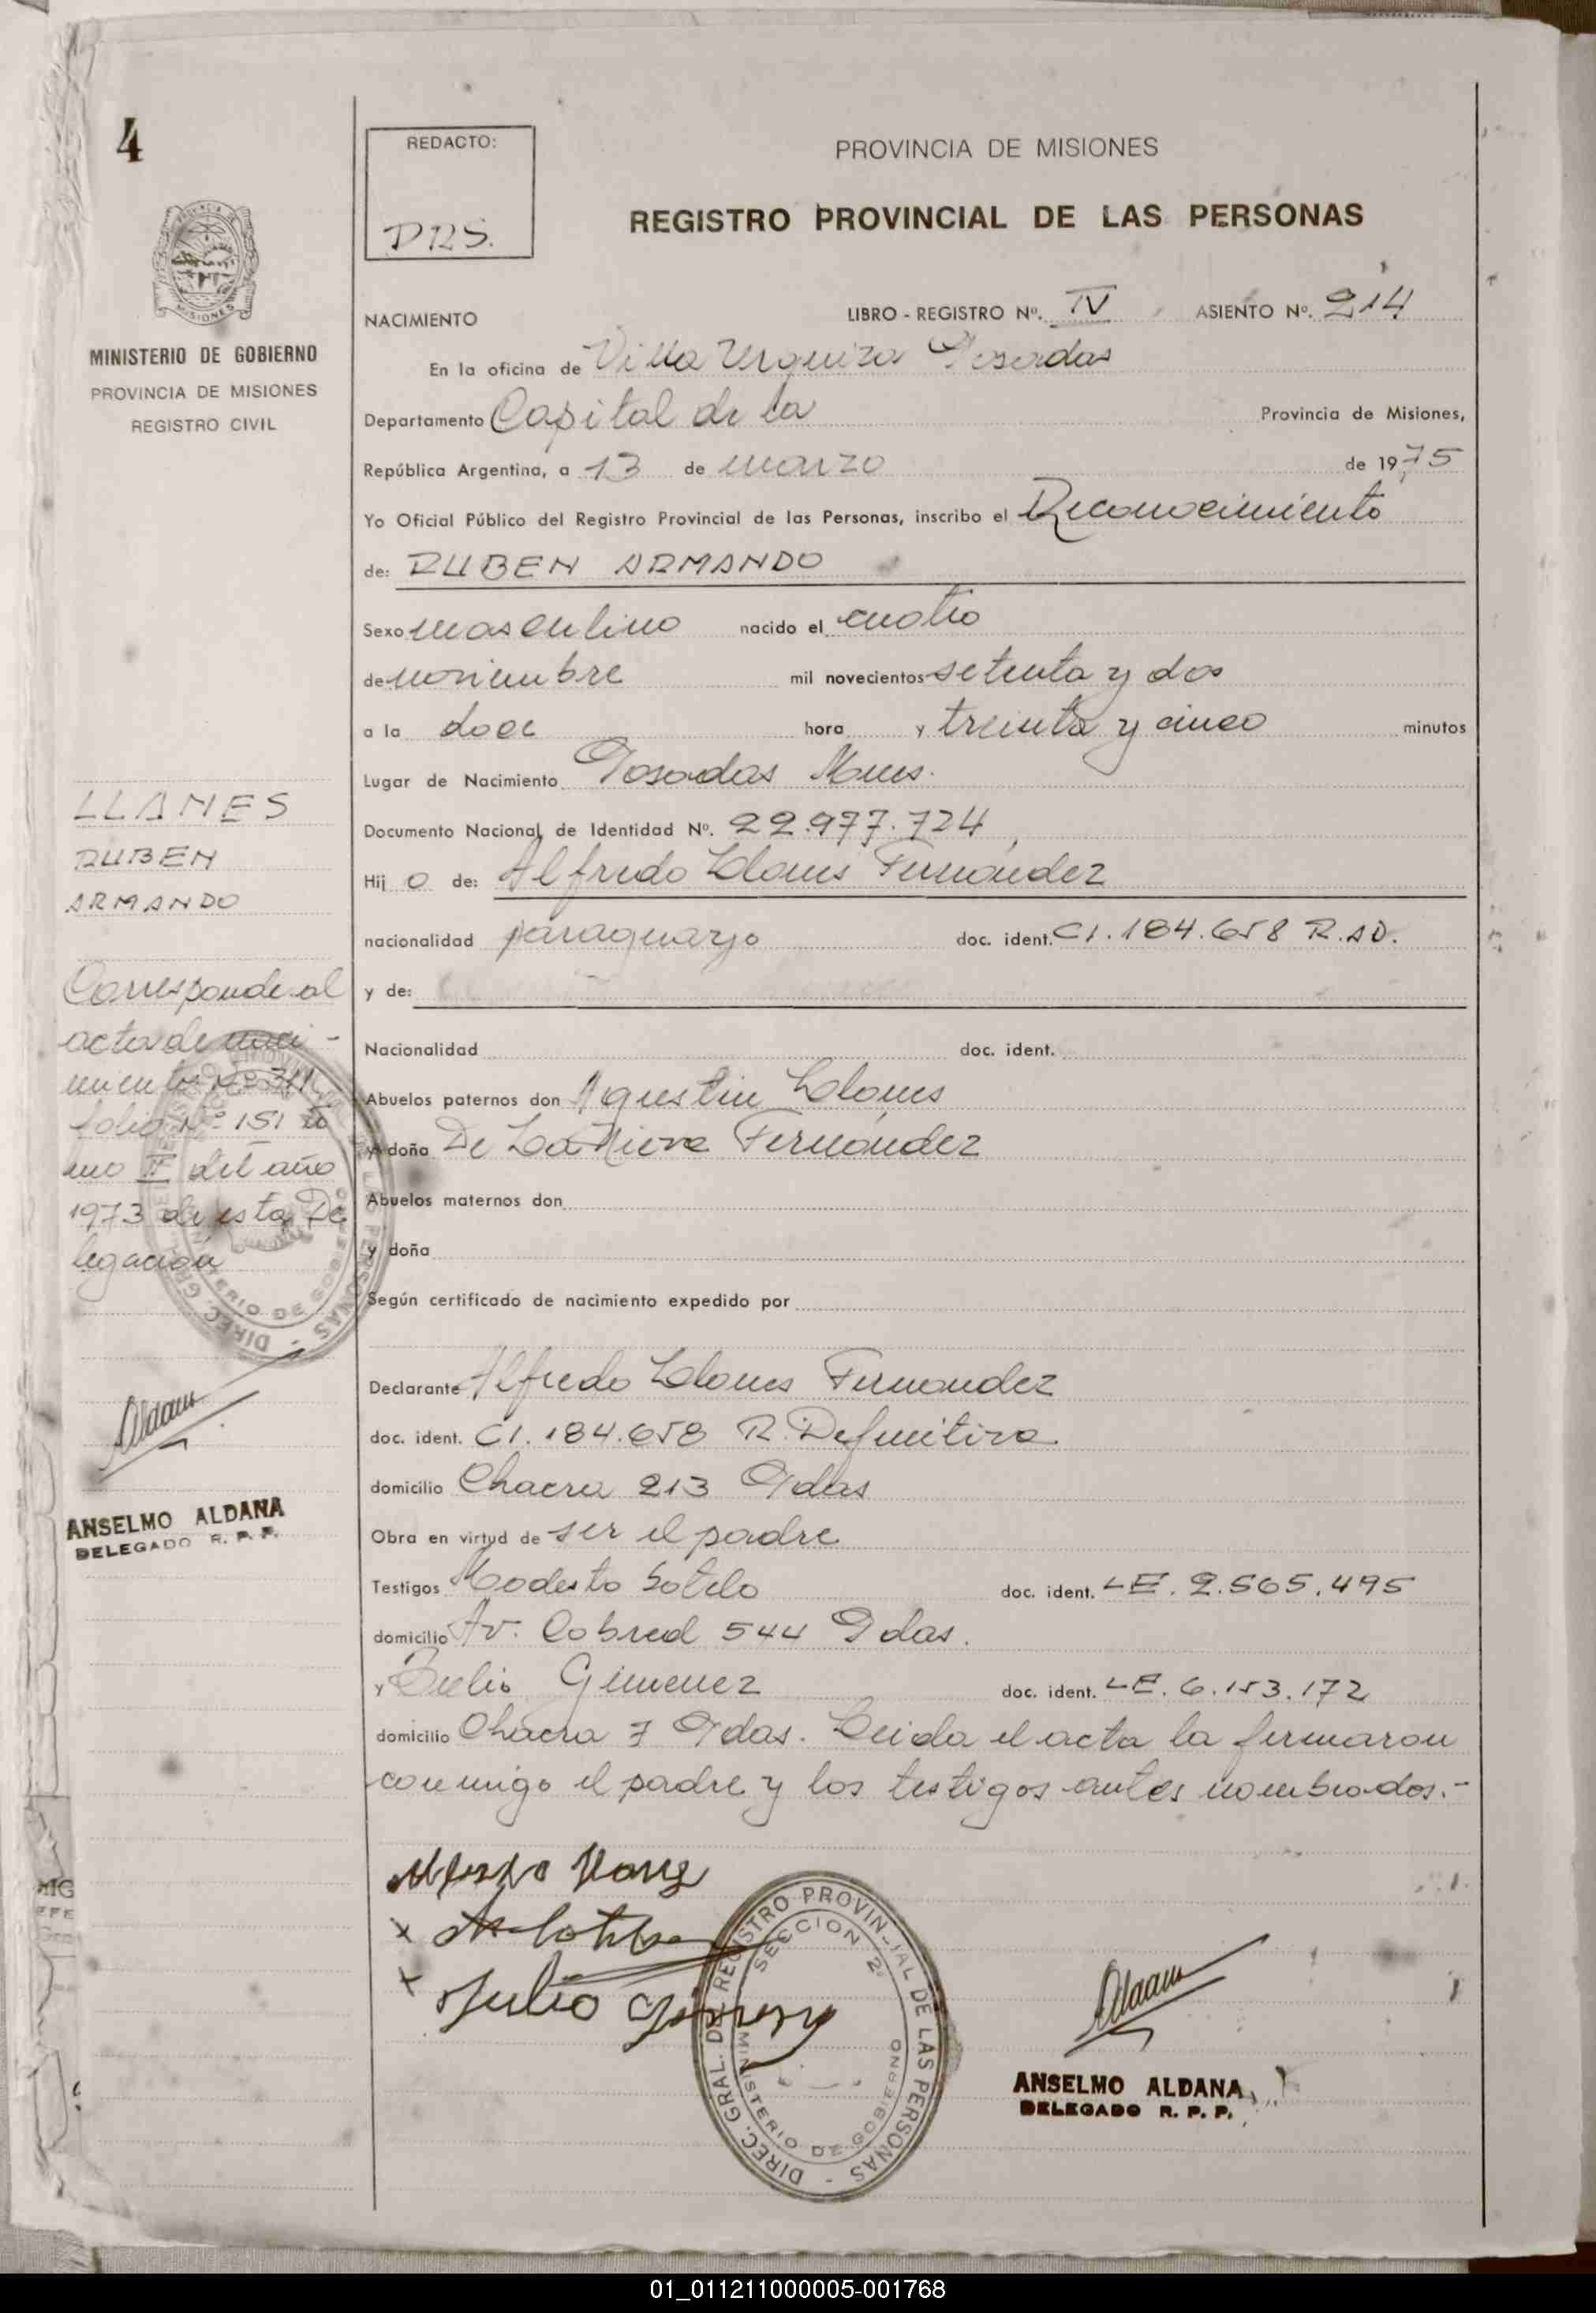 4
MINISTERIO DE GOBIERNO
PROVINCIA DE MISIONES
REGISTRO CIVIL
LLANES
RUBEN
ARMANDO
Corresponde al
acta de naci-
miento Nº 311
folio Nº 151 to
mo II del año
1973 de esta De
legación
ANSELMO ALDANA
DELEGADO R. P. P.
REDACTO:
PROVINCIA DE MISIONES
REGISTRO PROVINCIAL DE LAS PERSONAS
NACIMIENTO LIBRO - REGISTRO Nº. IV ASIENTO Nº. 214
En la oficina de Villa Urquiza Posadas
Departamento Capital de la Provincia de Misiones,
República Argentina, a 13 de marzo de 1975
Yo Oficial Público del Registro Provincial de las Personas, inscribo el Reconocimiento
de: RUBEN ARMANDO
Sexo masculino nacido el cuatro
de noviembre mil novecientos setenta y dos
a la doce hora y treinta y cinco minutos
Lugar de Nacimiento Posadas Mnes.
Documento Nacional de Identidad Nº. 22.977.724
Hij o de: Alfredo Llanes Fernández
nacionalidad paraguayo doc. ident. CI. 184.658 R.AD.
y de:
Nacionalidad doc. ident.
Abuelos paternos don Agustin Llanes
y doña De La Nieve Fernández
Abuelos maternos don
y doña
Según certificado de nacimiento expedido por
Declarante Alfredo Llanes Fernandez
doc. ident. CI. 184.658 R. Definitiva
domicilio Chacra 213 Pdas
Obra en virtud de ser el padre
Testigos Modesto Sotelo doc. ident. LE. 2.565.495
domicilio Av. Cobred 544 Pdas.
y Julio Gimenez doc. ident. LE. 6.153.172
domicilio Chacra 7 Pdas. Leida el acta la firmaron
conmigo el padre y los testigos antes nombrados.-
Julio Gimenez
DIREC. GRAL. DEL REGISTRO PROVINCIAL DE LAS PERSONAS
SECCION 2ª
MINISTERIO DE GOBIERNO
ANSELMO ALDANA
DELEGADO R. P. P.
01_011211000005-001768